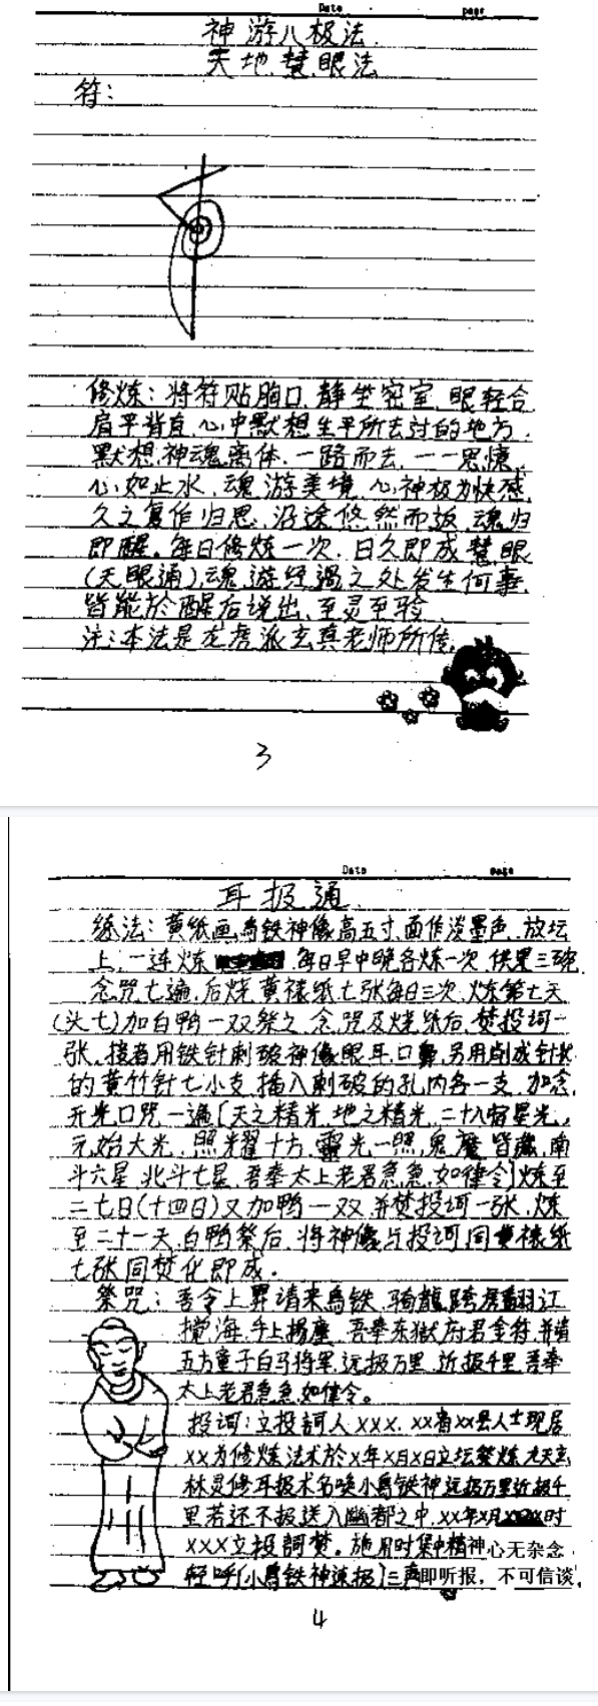 Date page
神游八极法
天地慧眼法
符：
修炼：将符贴胸口，静坐密室，眼轻合，
肩平背直，心中默想生平所去过的地方，
默想神魂离体，一路而去，一一思憶，
心如止水，魂游美境，心神极为快感，
久之复作归思，沿途悠然而返，魂归
即醒。每日修炼一次，日久即成慧眼
(天眼通)，魂游经过之处发生何事，
皆能於醒后说出，至灵至验
注：本法是龙虎派玄真老师所传。
3
Date page
耳报通
练法：黄纸画乌铁神像高五寸，面作淡墨色，放坛
上，一连炼 每日早中晚各炼一次，供果三碗
念咒七遍，后烧黄裱纸七张每日三次，炼第七天
(头七)加白鸭一双祭之，念咒及烧纸后，焚投词一
张，接者用铁针刺破神像眼耳口鼻，另用削成针状
的黄竹针七小支，插入刺破的孔内各一支，加念
开光口咒一遍[天之精光，地之精光，二十八宿星光，
元始大光，照耀十方，靈光一照，鬼魔皆藏，南
斗六星，北斗七星，吾奉太上老君急急如律令]炼至
二七日(十四日)又加鸭一双，并焚投词一张，炼
至二十一天，白鸭祭后，将神像与投词同黄裱纸
七张同焚化即成。
祭咒：吾令上界请来乌铁，骑龍跨虎翻江
搅海，手上拐塵，吾奉东獄府君金符，并请
五方童子白马将军，远报万里，近报千里，吾奉
太上老君急急如律令。
投词：立投詞人XXX，XX省XX县人士现居
XX为修炼法术於X年X月X日立坛祭炼九天玄
林灵修耳报术名唤小乌铁神远报万里近报千
里若还不报送入幽都之中，XX年X月 时
XXX立投詞焚。施用时集中精神心无杂念，
轻呼[小乌铁神速报]三声即听报，不可信谈。
4